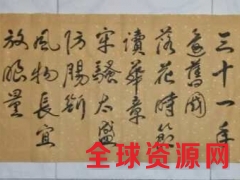 三十一年
還舊國
落花時節
讀華章
牢騷太盛
防腸斷
風物長宜
放眼量
全球资源网